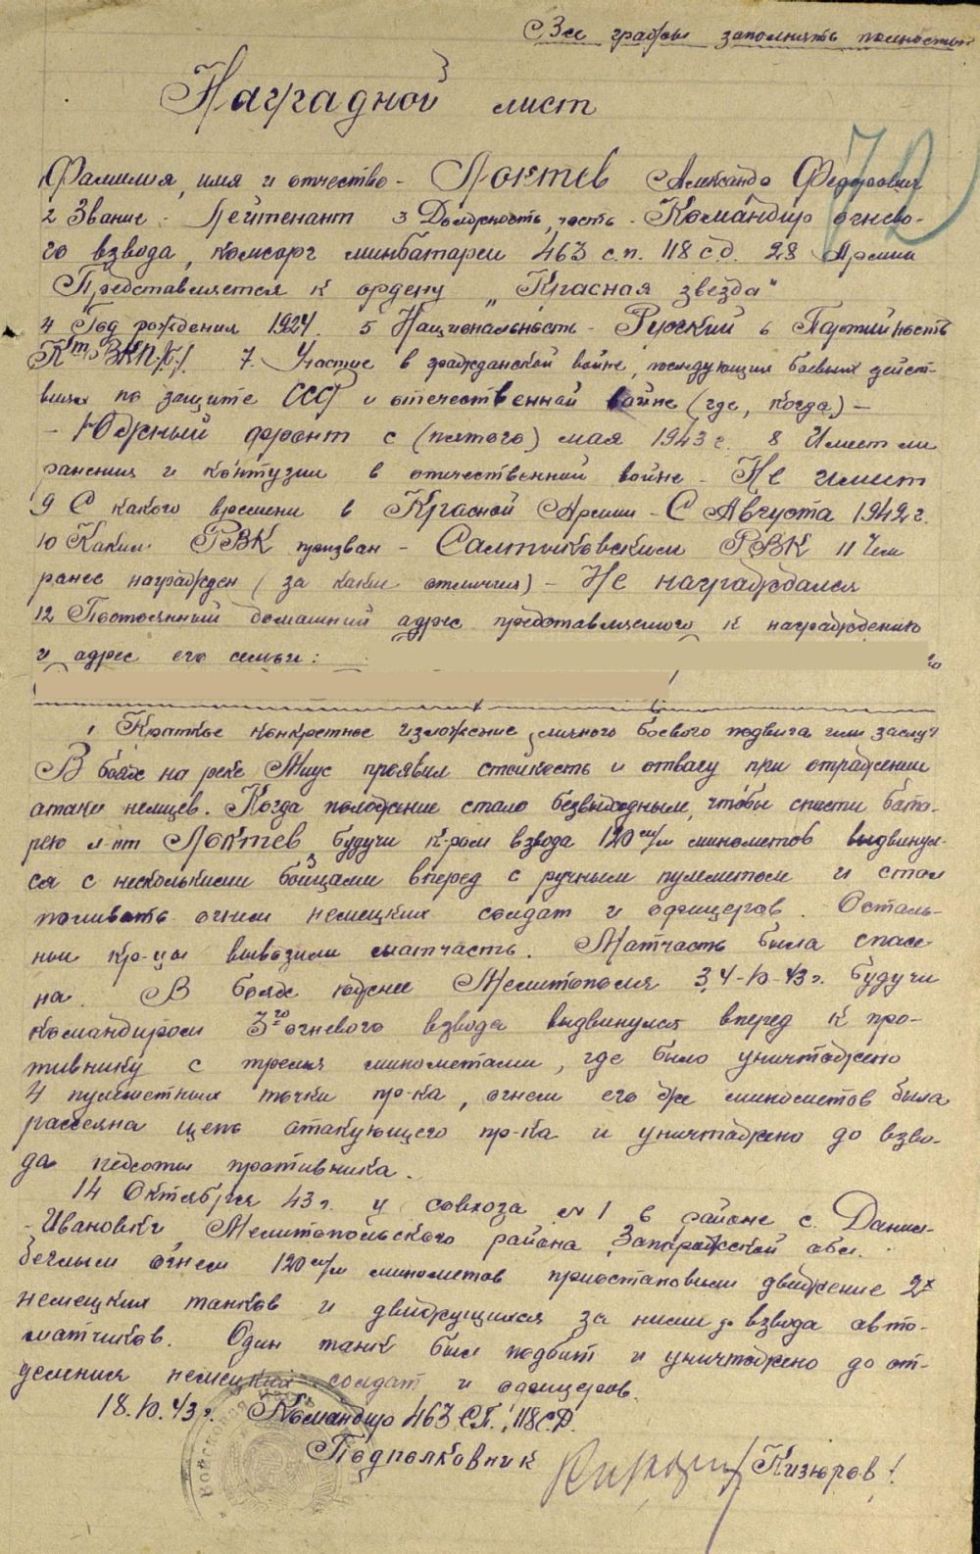 Все графы заполнять полностью
Наградной лист
1 Фамилия, имя и отчество - Локтев Александр Федорович
2 Звание - Лейтенант 3 Должность, часть - Командир огнево-
го взвода, комсорг минбатареи 463 с.п. 118 с.д. 28 Армии
Представляется к ордену „Красная звезда"
4 Год рождения 1924. 5 Национальность - Русский 6 Партийность
К/т ВКП/б/. 7. Участие в гражданской войне, последующих боевых дейст-
виях по защите СССР и отечественной войне (где, когда) -
- Южный фронт с (пятого) мая 1943 г. 8 Имеет ли
ранения и контузии в отечественной войне - Не имеет
9 С какого времени в Красной Армии - С Августа 1942 г.
10 Каким РВК призван - Салтыковским РВК 11 Чем
ранее награжден (за какие отличия) - Не награждался
12 Постоянный домашний адрес представляемого к награждению
и адрес его семьи:
1 Краткое конкретное изложение личного боевого подвига или заслуг
В боях на реке Миус проявил стойкость и отвагу при отражении
атаки немцев. Когда положение стало безвыходным, чтобы спасти бата-
рею л-нт Локтев, будучи к-ром взвода 120 м/м минометов выдвинул-
ся с несколькими бойцами вперед с ручным пулеметом и стал
поливать огнем немецких солдат и офицеров. Осталь-
ные кр-цы вывозили матчасть. Матчасть была спасе-
на. В боях южнее Мелитополя 3,4-10-43 г. будучи
командиром 3го огневого взвода выдвинулся вперед к про-
тивнику с тремя минометами, где было уничтожено
4 пулеметных точки пр-ка, огнем его же минометов была
рассеяна цепь атакующего пр-ка и уничтожено до взво-
да пехоты противника.
14 Октября 43 г. у совхоза № 1 в районе с. Данило-
-Ивановка, Мелитопольского района, Запорожской обл.
беглым огнем 120 м/м минометов приостановили движение 2х
немецких танков и движущихся за ними до взвода авто-
матчиков. Один танк был подбит и уничтожено до от-
деления немецких солдат и офицеров.
18.10.43 г. Командир 463 СП, 118 С.Д.
Подполковник Кизюров